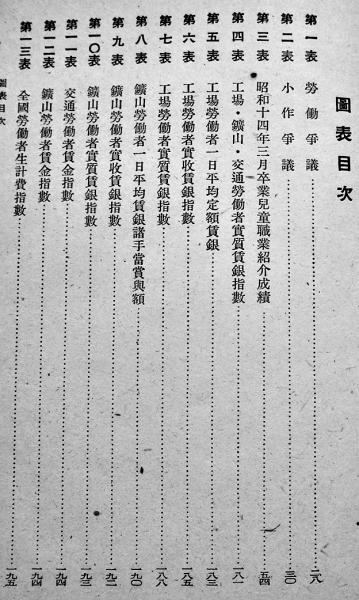 圖表目次
第一表 勞働爭議……二八
第二表 小作爭議……三〇
第三表 昭和十四年三月卒業兒童職業紹介成績……五四
第四表 工場・鑛山・交通勞働者實質賃銀指數……一八一
第五表 工場勞働者一日平均定額賃銀……一八三
第六表 工場勞働者實收賃銀指數……一八五
第七表 工場勞働者實質賃銀指數……一八八
第八表 鑛山勞働者一日平均賃銀諸手當賞與額……一九〇
第九表 鑛山勞働者實收賃銀指數……一九二
第一〇表 鑛山勞働者實質賃銀指數……一九三
第一一表 交通勞働者賃金指數……一九四
第一二表 鑛山勞働者賃金指數……一九四
第一三表 全國勞働者生計費指數……一九五
圖表目次